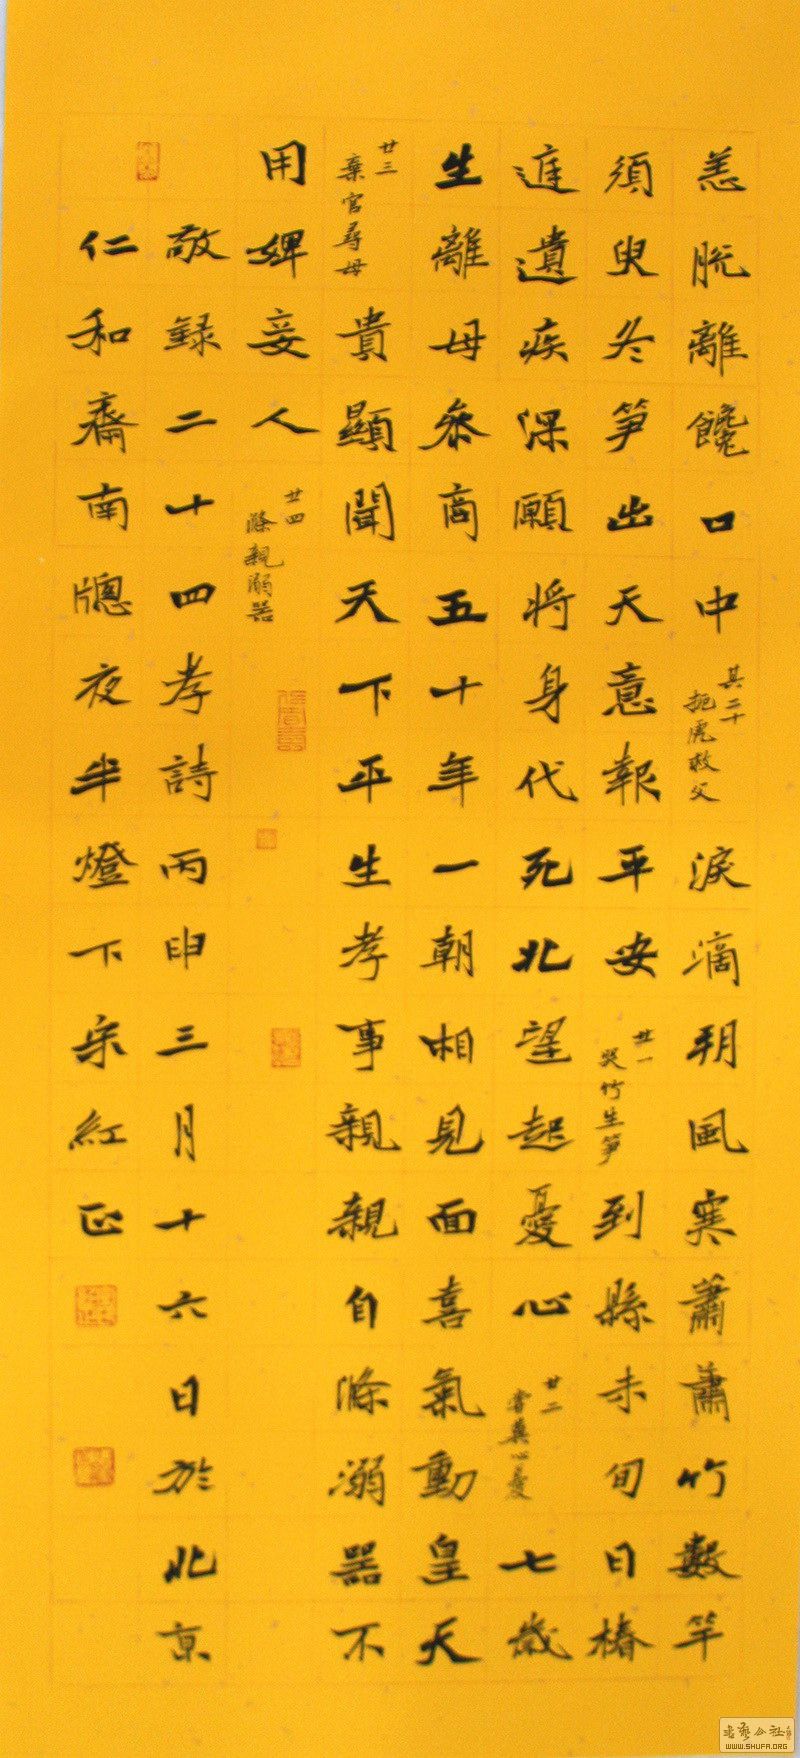 恙脱離饞口中其二十扼虎救父淚滴朔風寒蕭蕭竹數竿
須臾冬笋出天意報平安廿一哭竹生笋到縣未旬日椿
庭遺疾深願將身代死北望起憂心廿二嘗糞心憂七歲
生離母參商五十年一朝相見面喜氣動皇天
廿三棄官尋母貴顯聞天下平生孝事親親自滌溺器不
用婢妾人廿四滌親溺器
敬録二十四孝詩丙申三月十六日於北京
仁和齋南牕夜半燈下宋紅正
书艺公社
WWW.SHUFA.ORG